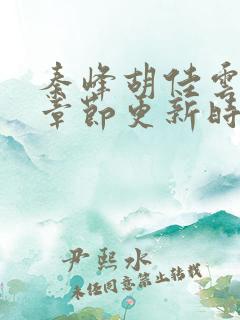 秦峰胡佳雲
章節更新時
尹熙水
未經同意禁止轉載